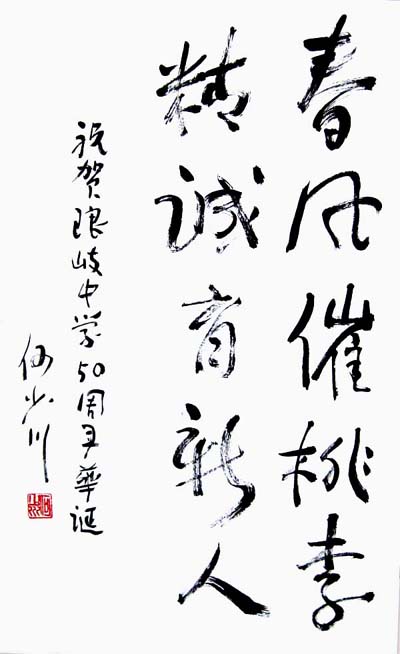 春风催桃李
精诚育新人
祝贺琅岐中学50周年华诞
何少川